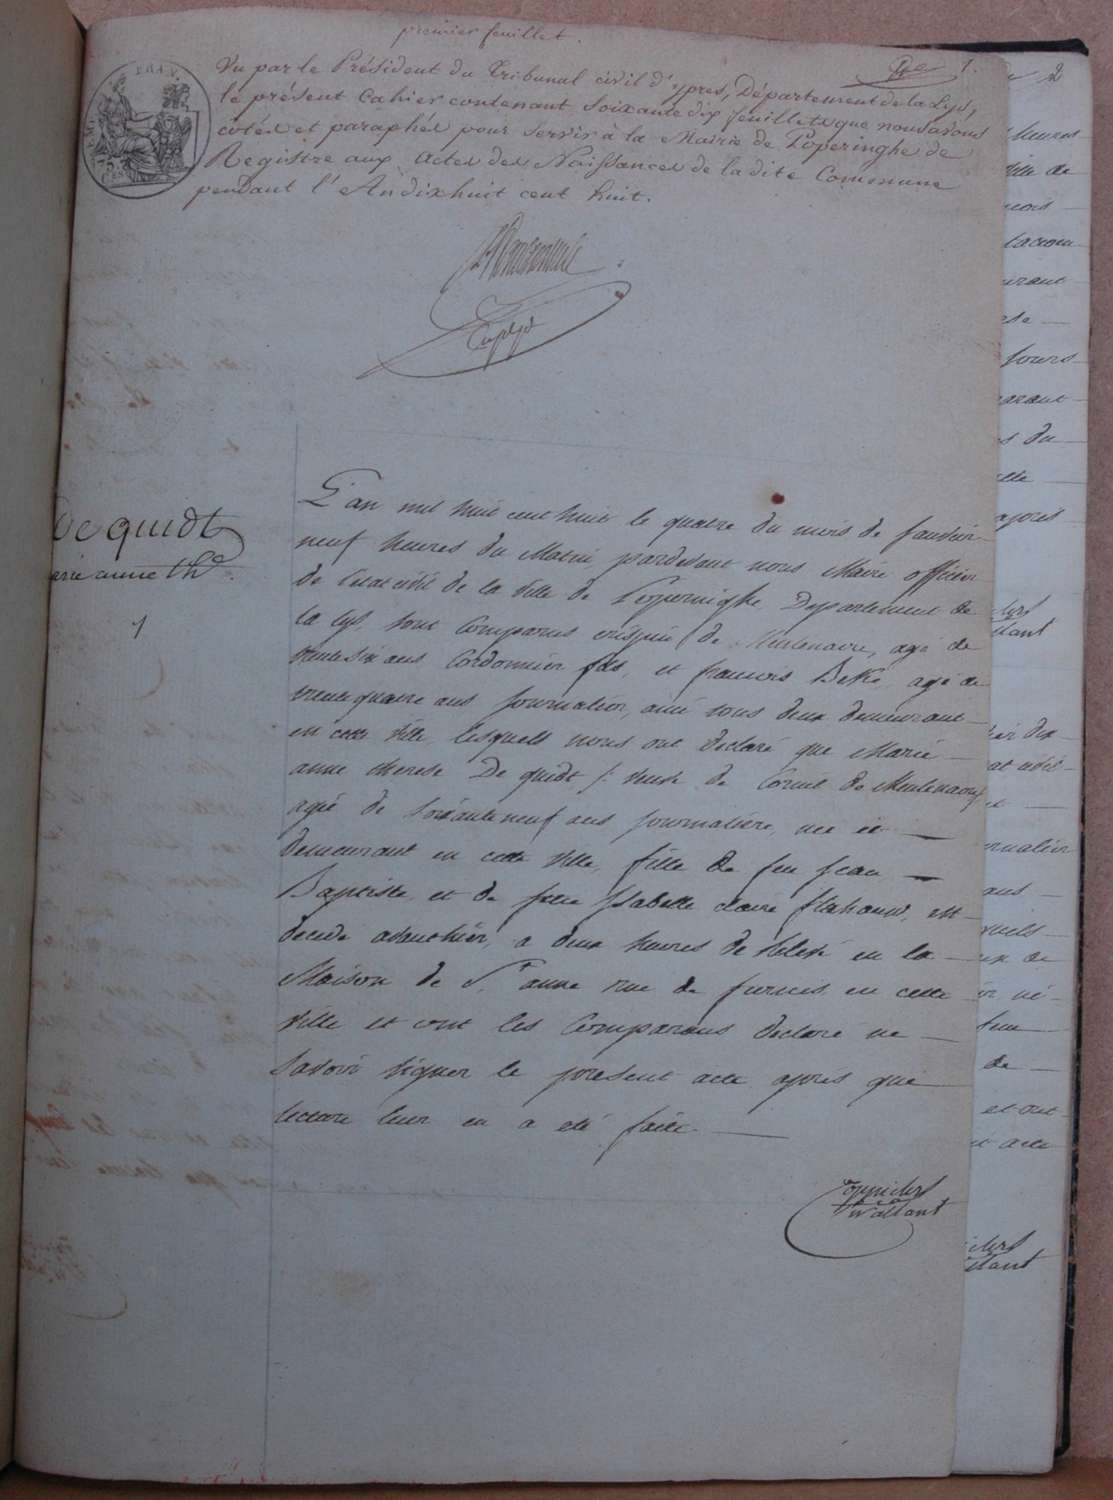 premier feuillet.
1.
Vu par le Président du Tribunal civil d'ypres, Département de la Lys,
le présent Cahier contenant Soixante dix feuillets que nous avons
cotés et paraphés pour servir à la Mairie de Poperinghe de
Registre aux Actes des Naissances de la dite Commune
pendant l'An dix huit cent huit.
De quidt
marie anne Thse
1
L'an mil huit cent huit le quatre du mois de Janvier
neuf heures du Matin pardevant nous Maire officier
de l'état civil de la Ville de Poperinghe Departement de
la Lys, sont Comparus crispin de Meulenaere, agé de
trente six ans Cordonnier fils, et francois Beke agé de
trente quatre ans Journalier, ami tous deux demeurant
en cette Ville, lesquels nous ont declaré que Marie
anne therese De quidt /: veuve de Corneil de Meulenaere
agée de soixante neuf ans journaliere, née et
demeurant en cette Ville, fille de feu Jean
Baptiste, et de feue Isabelle Claire flahauw, est
decedé avanthier, a deux heures de Relevé en la
Maison de St. anne rue de furnes en cette
Ville et ont les Comparans declaré ne
savoir signer le present acte apres que
lecture leur en a été faite.
Vallant
2